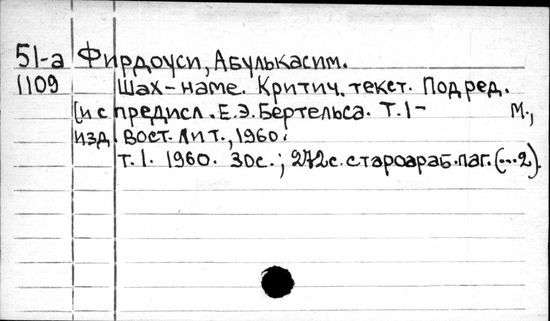 51-а Фирдоуси, Абулькасим.
1109 Шах-наме. Критич. текст. Под ред.
[и с предисл. Е.Э. Бертельса. Т.1- М.,
изд. вост. лит., 1960.
т.1. 1960. 30с.; 272с. староараб. паг. (...2).